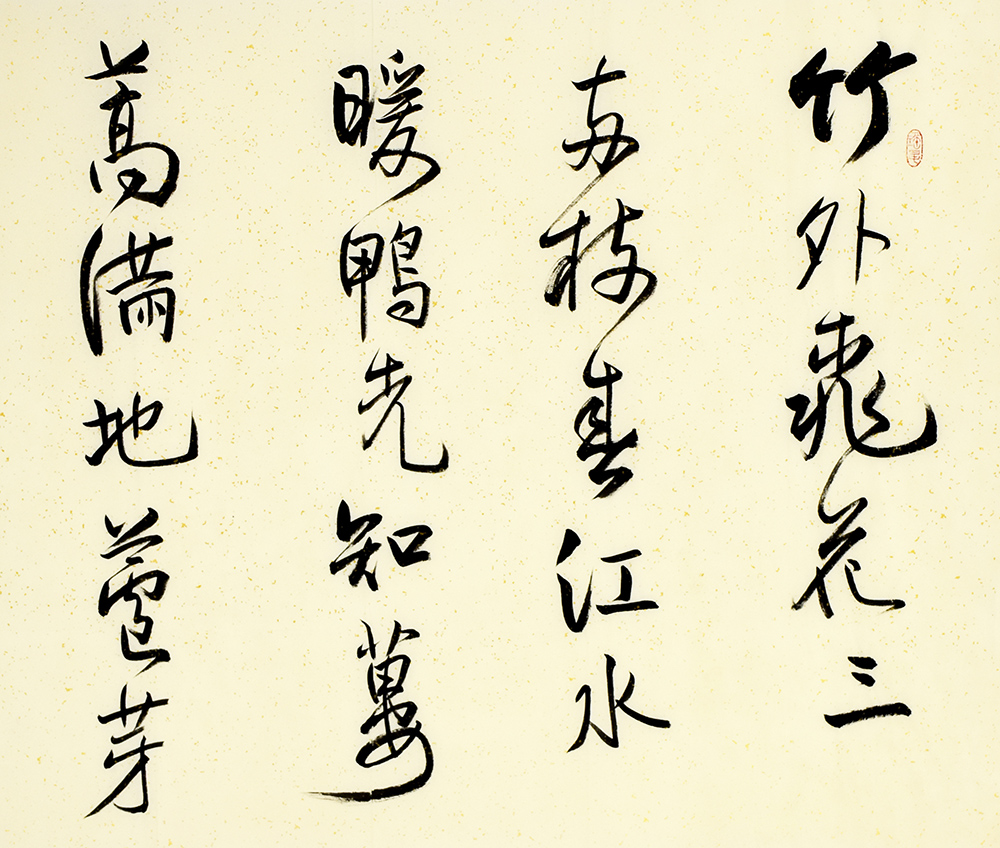 竹外桃花三
兩枝春江水
暖鴨先知蔞
蒿滿地蘆芽